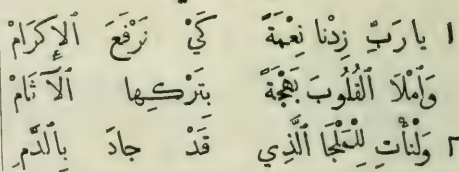 ١ يا رَبِّ زِدْنا نِعْمَةً كَيْ نَرْفَعَ ٱلْإِكرَامْ
وَٱمْلَا ٱلْقُلُوبَ بَهْجَةً بِتَرْكِها ٱلْآثَامْ
٢ وَلْنَأْتِ لِلْمَلْجَا ٱلَّذِي قَدْ جادَ بِٱلدَّمِ